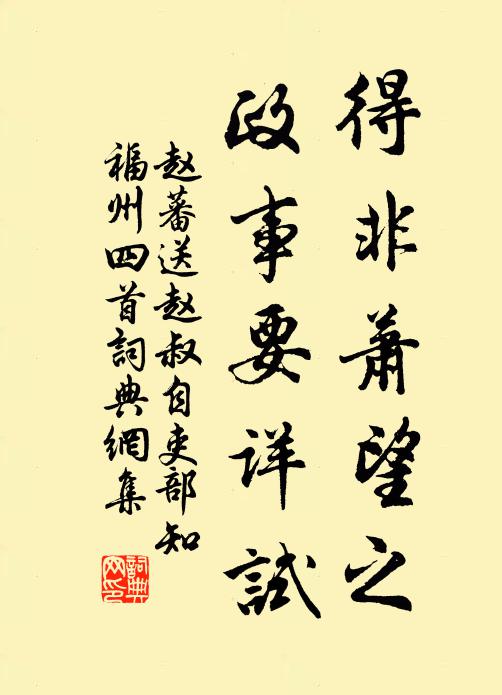 得非萧望之
政事要详試
赵蕃送赵叔自吏部知
福州四首詞典網集
詞典网印